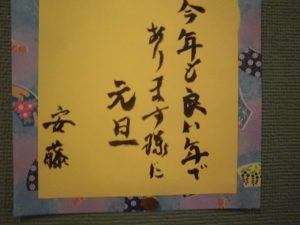 今年も良い年で
あります様に
元旦
安藤